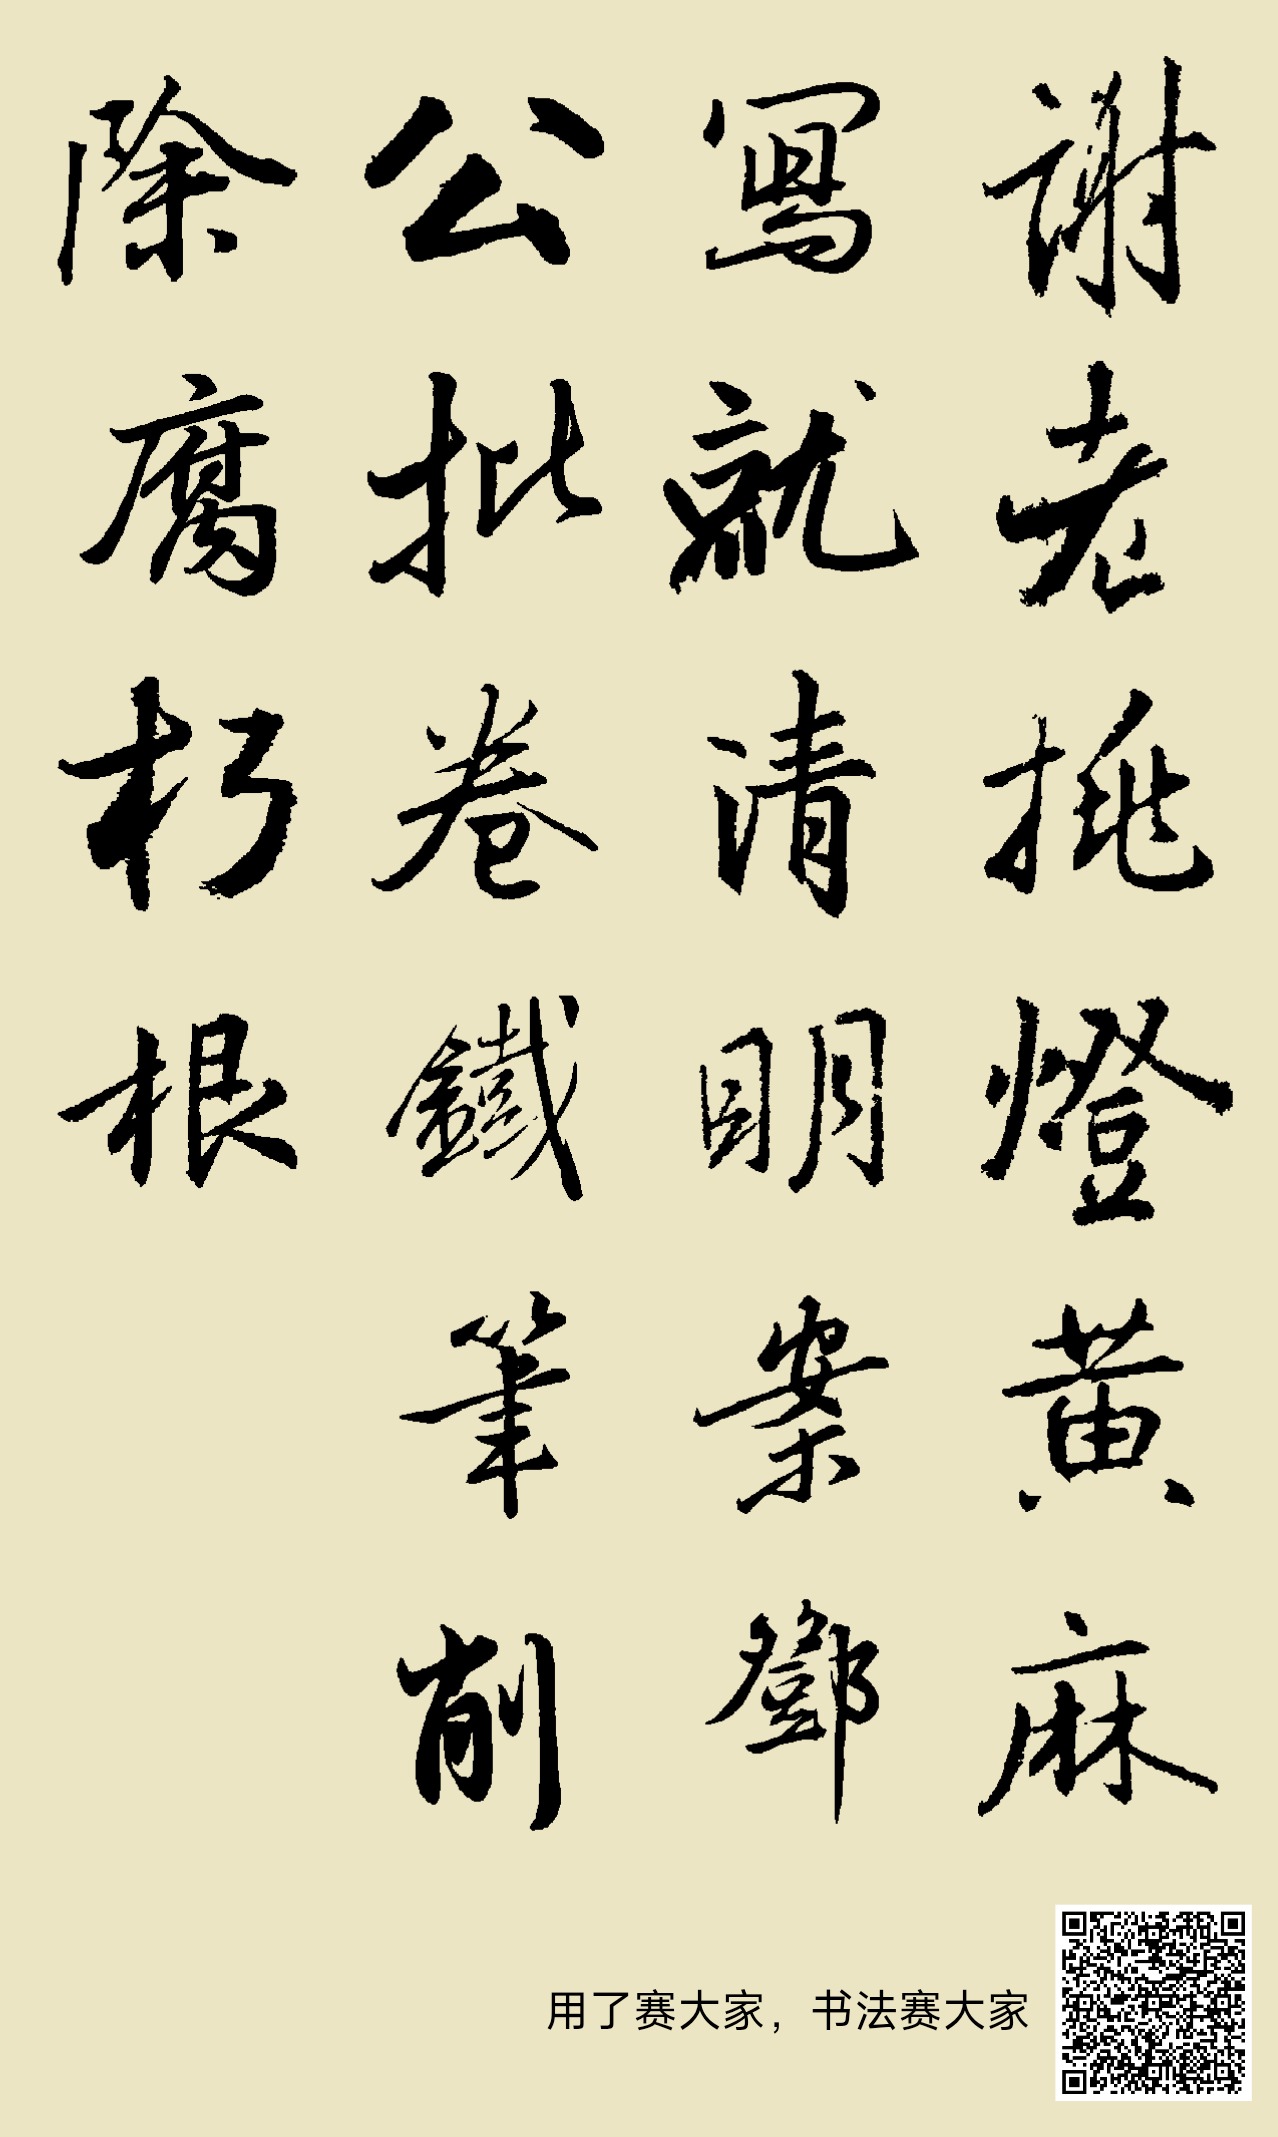 謝老挑燈黃麻
寫就清明案鄧
公批卷鐵筆削
除腐朽根
用了赛大家，书法赛大家